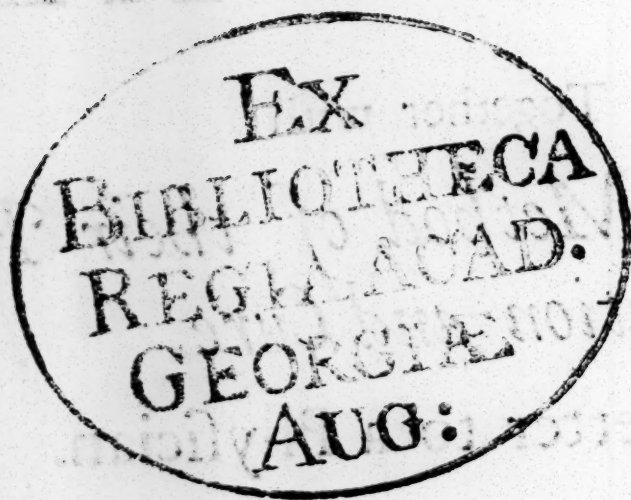 Ex
BIBLIOTHECA
REGIA ACAD.
GEORGIÆ
AUG: